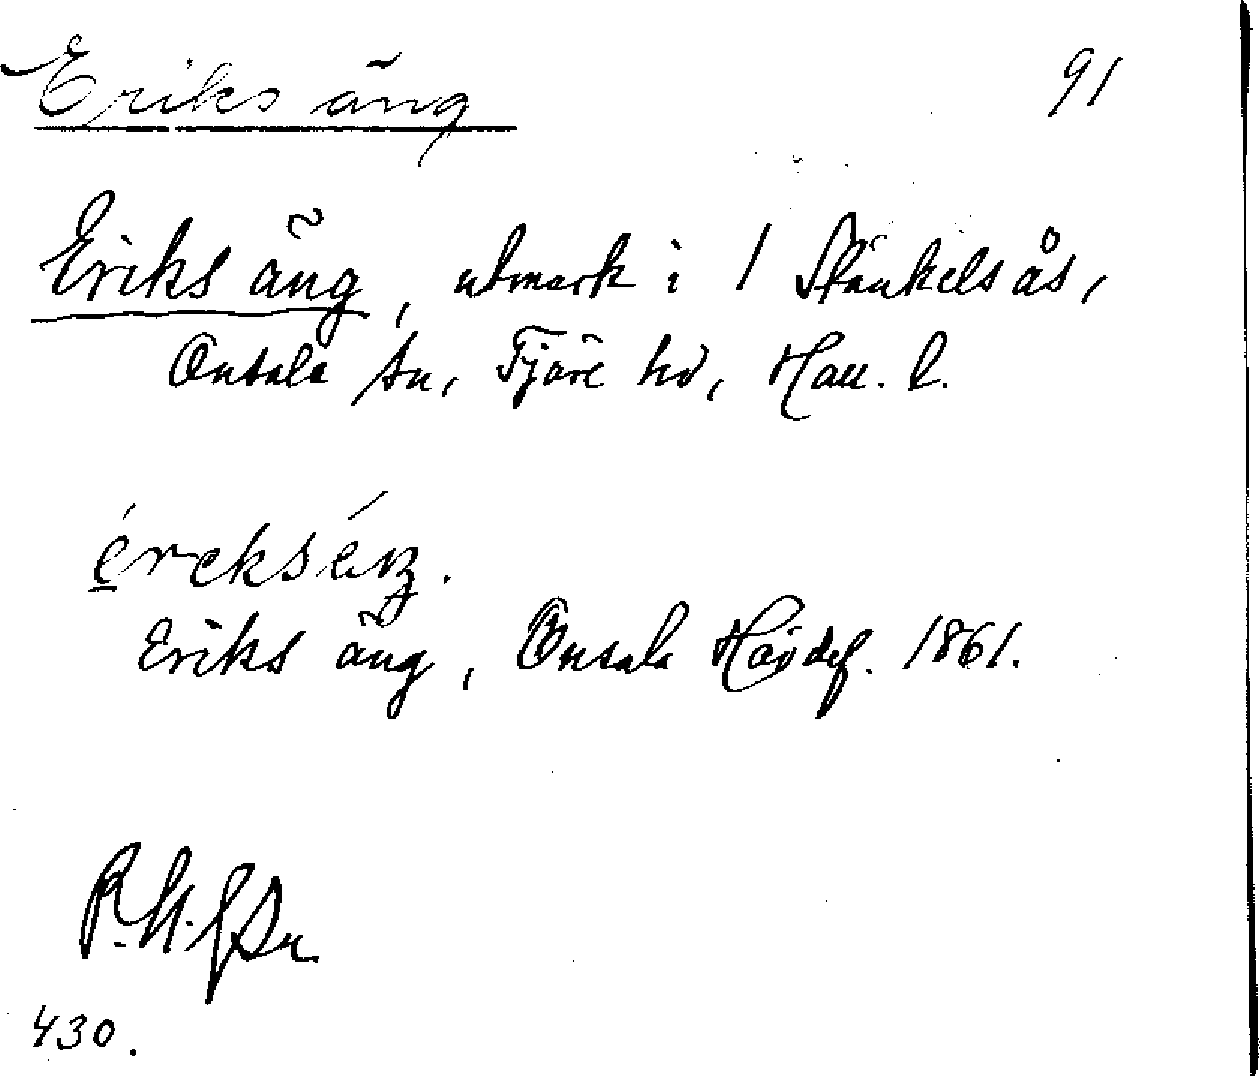 Eriks äng 91
Eriks äng, utmark i 1 Stänkelsås,
Onsala sn, Fjäre hd, Hall. l.
érekséŋ.
Eriks äng, Onsala Hävdef. 1861.
430.